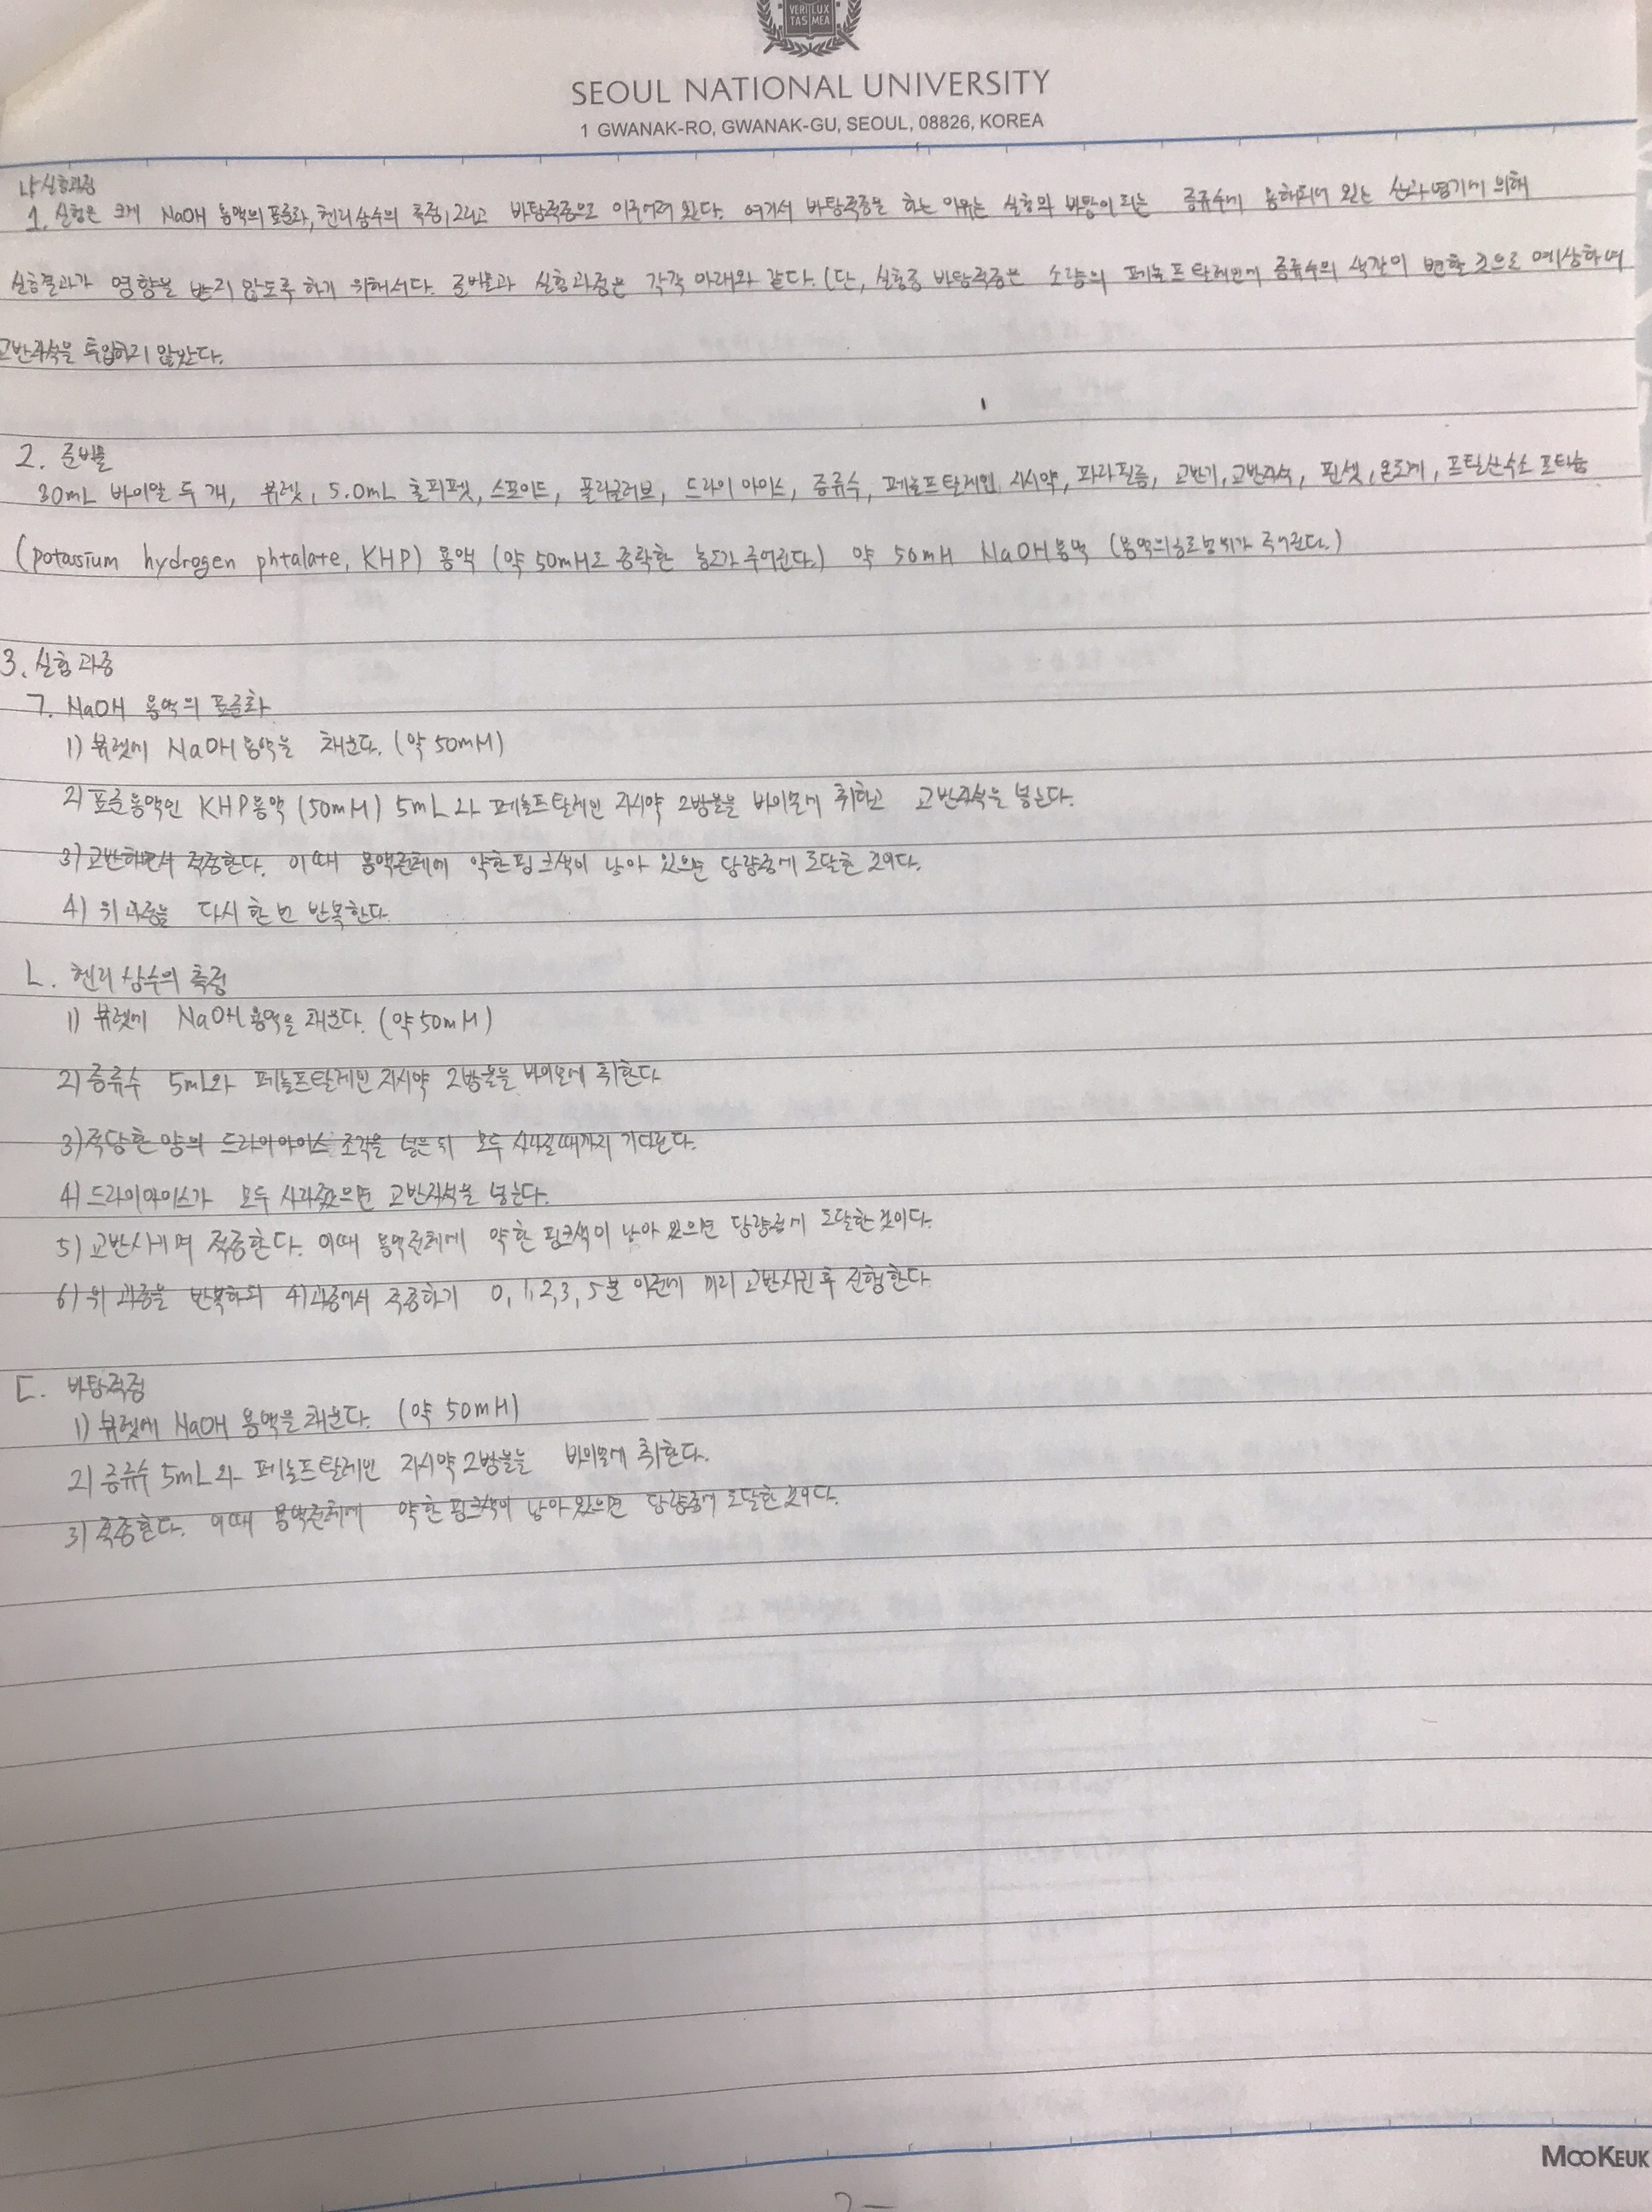 VERI LUX
TAS MEA
SEOUL NATIONAL UNIVERSITY
1 GWANAK-RO, GWANAK-GU, SEOUL, 08826, KOREA
나 실험과정
1. 실험은 크게 NaOH 용액의 표준화, 헨리상수의 측정, 그리고 바탕적정으로 이루어져 있다. 여기서 바탕적정을 하는 이유는 실험의 바탕이 되는 증류수에 용해되어 있는 산과 염기에 의해
실험결과가 영향을 받지 않도록 하기 위해서다. 준비물과 실험과정은 각각 아래와 같다. (단, 실험중 바탕적정은 소량의 페놀프탈레인에 증류수의 색깔이 변할 것으로 예상하여
고반자석을 투입하지 않았다.
2. 준비물
30mL 바이알 두 개, 뷰렛, 5.0mL 홀피펫, 스포이드, 폴리글러브, 드라이 아이스, 증류수, 페놀프탈레인 지시약, 파라필름, 교반기, 교반자석, 핀셋, 온도계, 프탈산수소 포타슘
(potassium hydrogen phtalate, KHP) 용액 (약 50mM로 정확한 농도가 주어진다.) 약 50mM NaOH 용액 (용액의 농도범위가 주어진다.)
3. 실험 과정
ㄱ. NaOH 용액의 표준화
1) 뷰렛에 NaOH 용액을 채운다. (약 50mM)
2) 표준용액인 KHP용액 (50mM) 5mL와 페놀프탈레인 지시약 2방울을 바이알에 취하고 교반자석을 넣는다.
3) 교반하면서 적정한다. 이때 용액전체에 약한 핑크색이 남아 있으면 당량점에 도달한 것이다.
4) 위 과정을 다시 한 번 반복한다.
ㄴ. 헨리 상수의 측정
1) 뷰렛에 NaOH 용액을 채운다. (약 50mM)
2) 증류수 5mL와 페놀프탈레인 지시약 2방울을 바이알에 취한다
3) 적당한 양의 드라이아이스 조각을 넣은 뒤 모두 사라질때까지 기다린다.
4) 드라이아이스가 모두 사라졌으면 교반자석을 넣는다.
5) 교반시키며 적정한다. 이때 용액전체에 약한 핑크색이 남아 있으면 당량점에 도달한 것이다.
6) 위 과정을 반복하되 4)과정에서 적정하기 0, 1, 2, 3, 5분 이전에 미리 교반시킨 후 진행한다.
ㄷ. 바탕적정
1) 뷰렛에 NaOH 용액을 채운다. (약 50mM)
2) 증류수 5mL와 페놀프탈레인 지시약 2방울을 바이알에 취한다.
3) 적정한다. 이때 용액전체에 약한 핑크색이 남아있으면 당량점에 도달한 것이다.
MOOKEUK